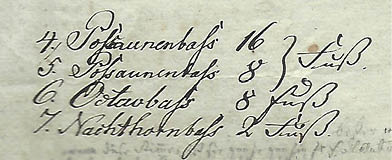 4., Possaunenbass 16 } Fuß.
5. Possaunenbass 8
6. Octavbass 8 Fuß
7. Nachthornbass 2 Fuß.